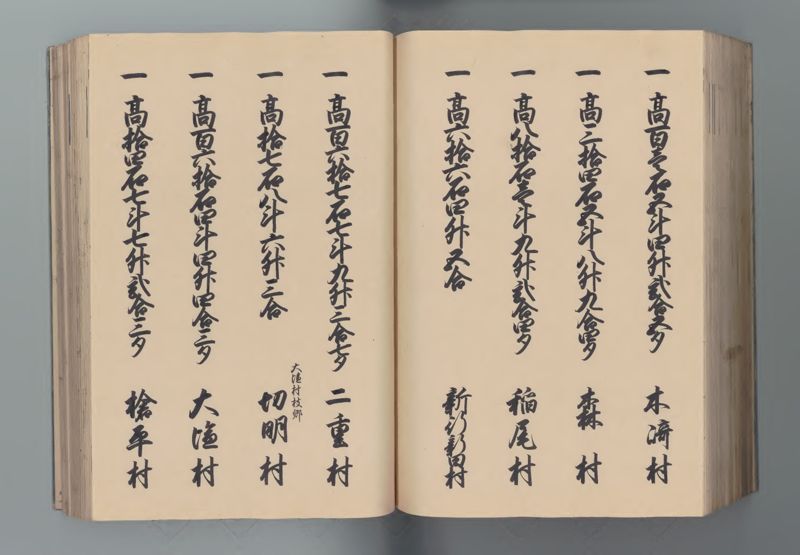 一 高百壱石五斗四升弐合五夕 木崎村
一 高三拾四石五斗八升九合四夕 森村
一 高八拾石壱斗九升弐合四夕 稲尾村
一 高六拾六石四升五合 新行新田村
一 高百六拾七石七斗九升三合七夕 二重村
大塩村枝郷
一 高拾七石八斗六升三合 切明村
一 高百六拾石四斗四升四合三夕 大塩村
一 高拾四石七斗七升弐合三夕 槍平村